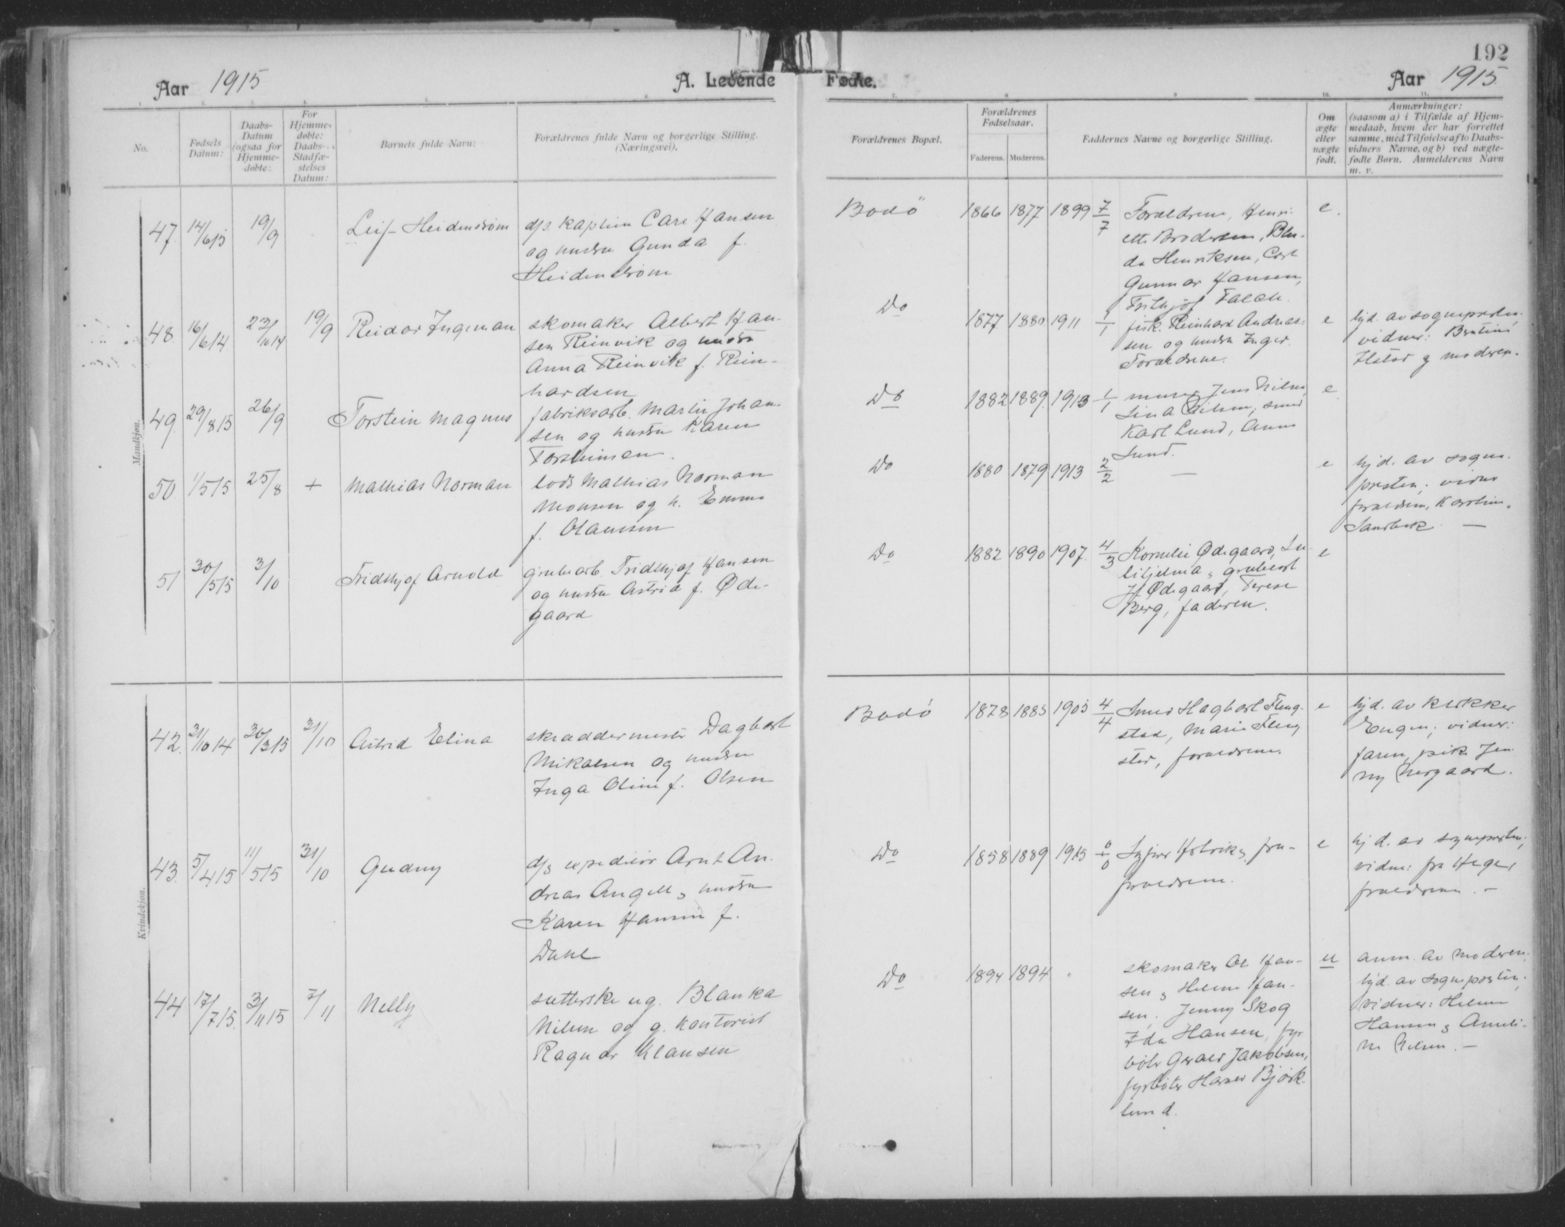 192
Aar 1915 A. Levende Fødte. Aar 1915
No.
Fødsels Datum:
Daabs-Datum (ogsaa for Hjemme-døbte:
For Hjemme-døbte: Daabs-Stadfæ-stelses Datum:
Barnets fulde Navn:
Forældrenes fulde Navn og borgerlige Stilling.
(Næringsvei).
Forældrenes Bopæl.
Forældrenes Fødselsaar.
Faderens. Moderens.
Faddernes Navne og borgerlige Stilling.
Om ægte eller nægte født.
Anmærkninger:
(saasom a) i Tilfælde af Hjem-
medaab, hvem der har forrettet
samme, med Tilføielse af to Daabs-
vidners Navne, og b) ved nægte-
fødte Børn. Anmelderens Navn
m. v.
Mandkjøn.
47 14/6 15 19/9 Leif Heidenstrøm
d/s kaptein Carl Hansen
og hustru Gunda f.
Heidenstrøm
Bodö 1866 1877 1899 7/7
Forældrene, Henri-
ette Brodersen,
da Henriksen, Carl
Gunnar Hansen,
Frithjof Falch.
e.
48 16/6 14 19/9 Reidar Ingeman
skomaker Albert Han-
sen Reinvik og hustru
Anna Reinvik f. Rein-
hardsen
Do 1877 1880 1911 1/1
fisk. Reinhard Andreas-
sen og hustru Inger.
Forældrene.
e
hjd. av sognepresten
vidner:
og moderen.
49 29/8 15 26/9 Torstein Magnus
fabrikarb. Martin Johan-
sen og hustru Karen
Torsteinsen.
Do 1882 1889 1913 1/1
murer Jens Nilsen,
Lina Nilsen, smed
Karl Lund, Anna
Lund.
e
50 1/5 15 25/8 + Mathias Norman
lods Mathias Norman
Monsen og h. Emma
f. Olaussen
Do 1880 1879 1913 2/2 —
e
hjd. av sogne-
presten; vidner
forældrene, Karoline
Sandbæk. —
51 30/5 15 3/10 Fridthjof Arnold
grubearb. Fridthjof Hansen
og hustru Astrid f. Øde-
gaard
Do 1882 1890 1907 4/3
Kornelie Ødegaard,
grubearb
H Ødegaard, Terese
Berg, faderen.
e
Kvindekjøn.
42 21/10 14 30/3 15 31/10 Astrid Elina
skræddermester Dagbart
Mikalsen og hustru
Inga Oline f. Olsen
Bodö 1878 1885 1905 4/4
Smed Hagbart Fleng-
stad, Marie Fleng
stad, forældrene.
e
hjd. av kirkker
Engen; vidner:
faren, pike Jen-
ny Nergaard.
43 5/4 15 11/5 15 31/10 Gudny
d/s expeditør Arnt An-
dreas Angell og hustru
Karen Hansine f.
Dahl
Do 1858 1889 1915 0/0
forældrene.
e
hjd. av sognepresten;
vidner: fru Heger
forældrene. —
44 17/7 15 3/11 15 7/11 Nelly
sætterske ug. Blanka
Nilsen og g. kontorist
Ragnar Klausen
Do 1894 1894
skomaker Ol Han-
sen og Helene Han-
sen. Jenny Skog
Ida Hansen, fyr-
bøter Gerald Jakobsen,
fyrbøter Harald Bjørk-
lund.
u
anm. av moderen;
hjd. av sogneprsten;
vidner: Helene
Hansen og Ameli-
ne Nilsen. —